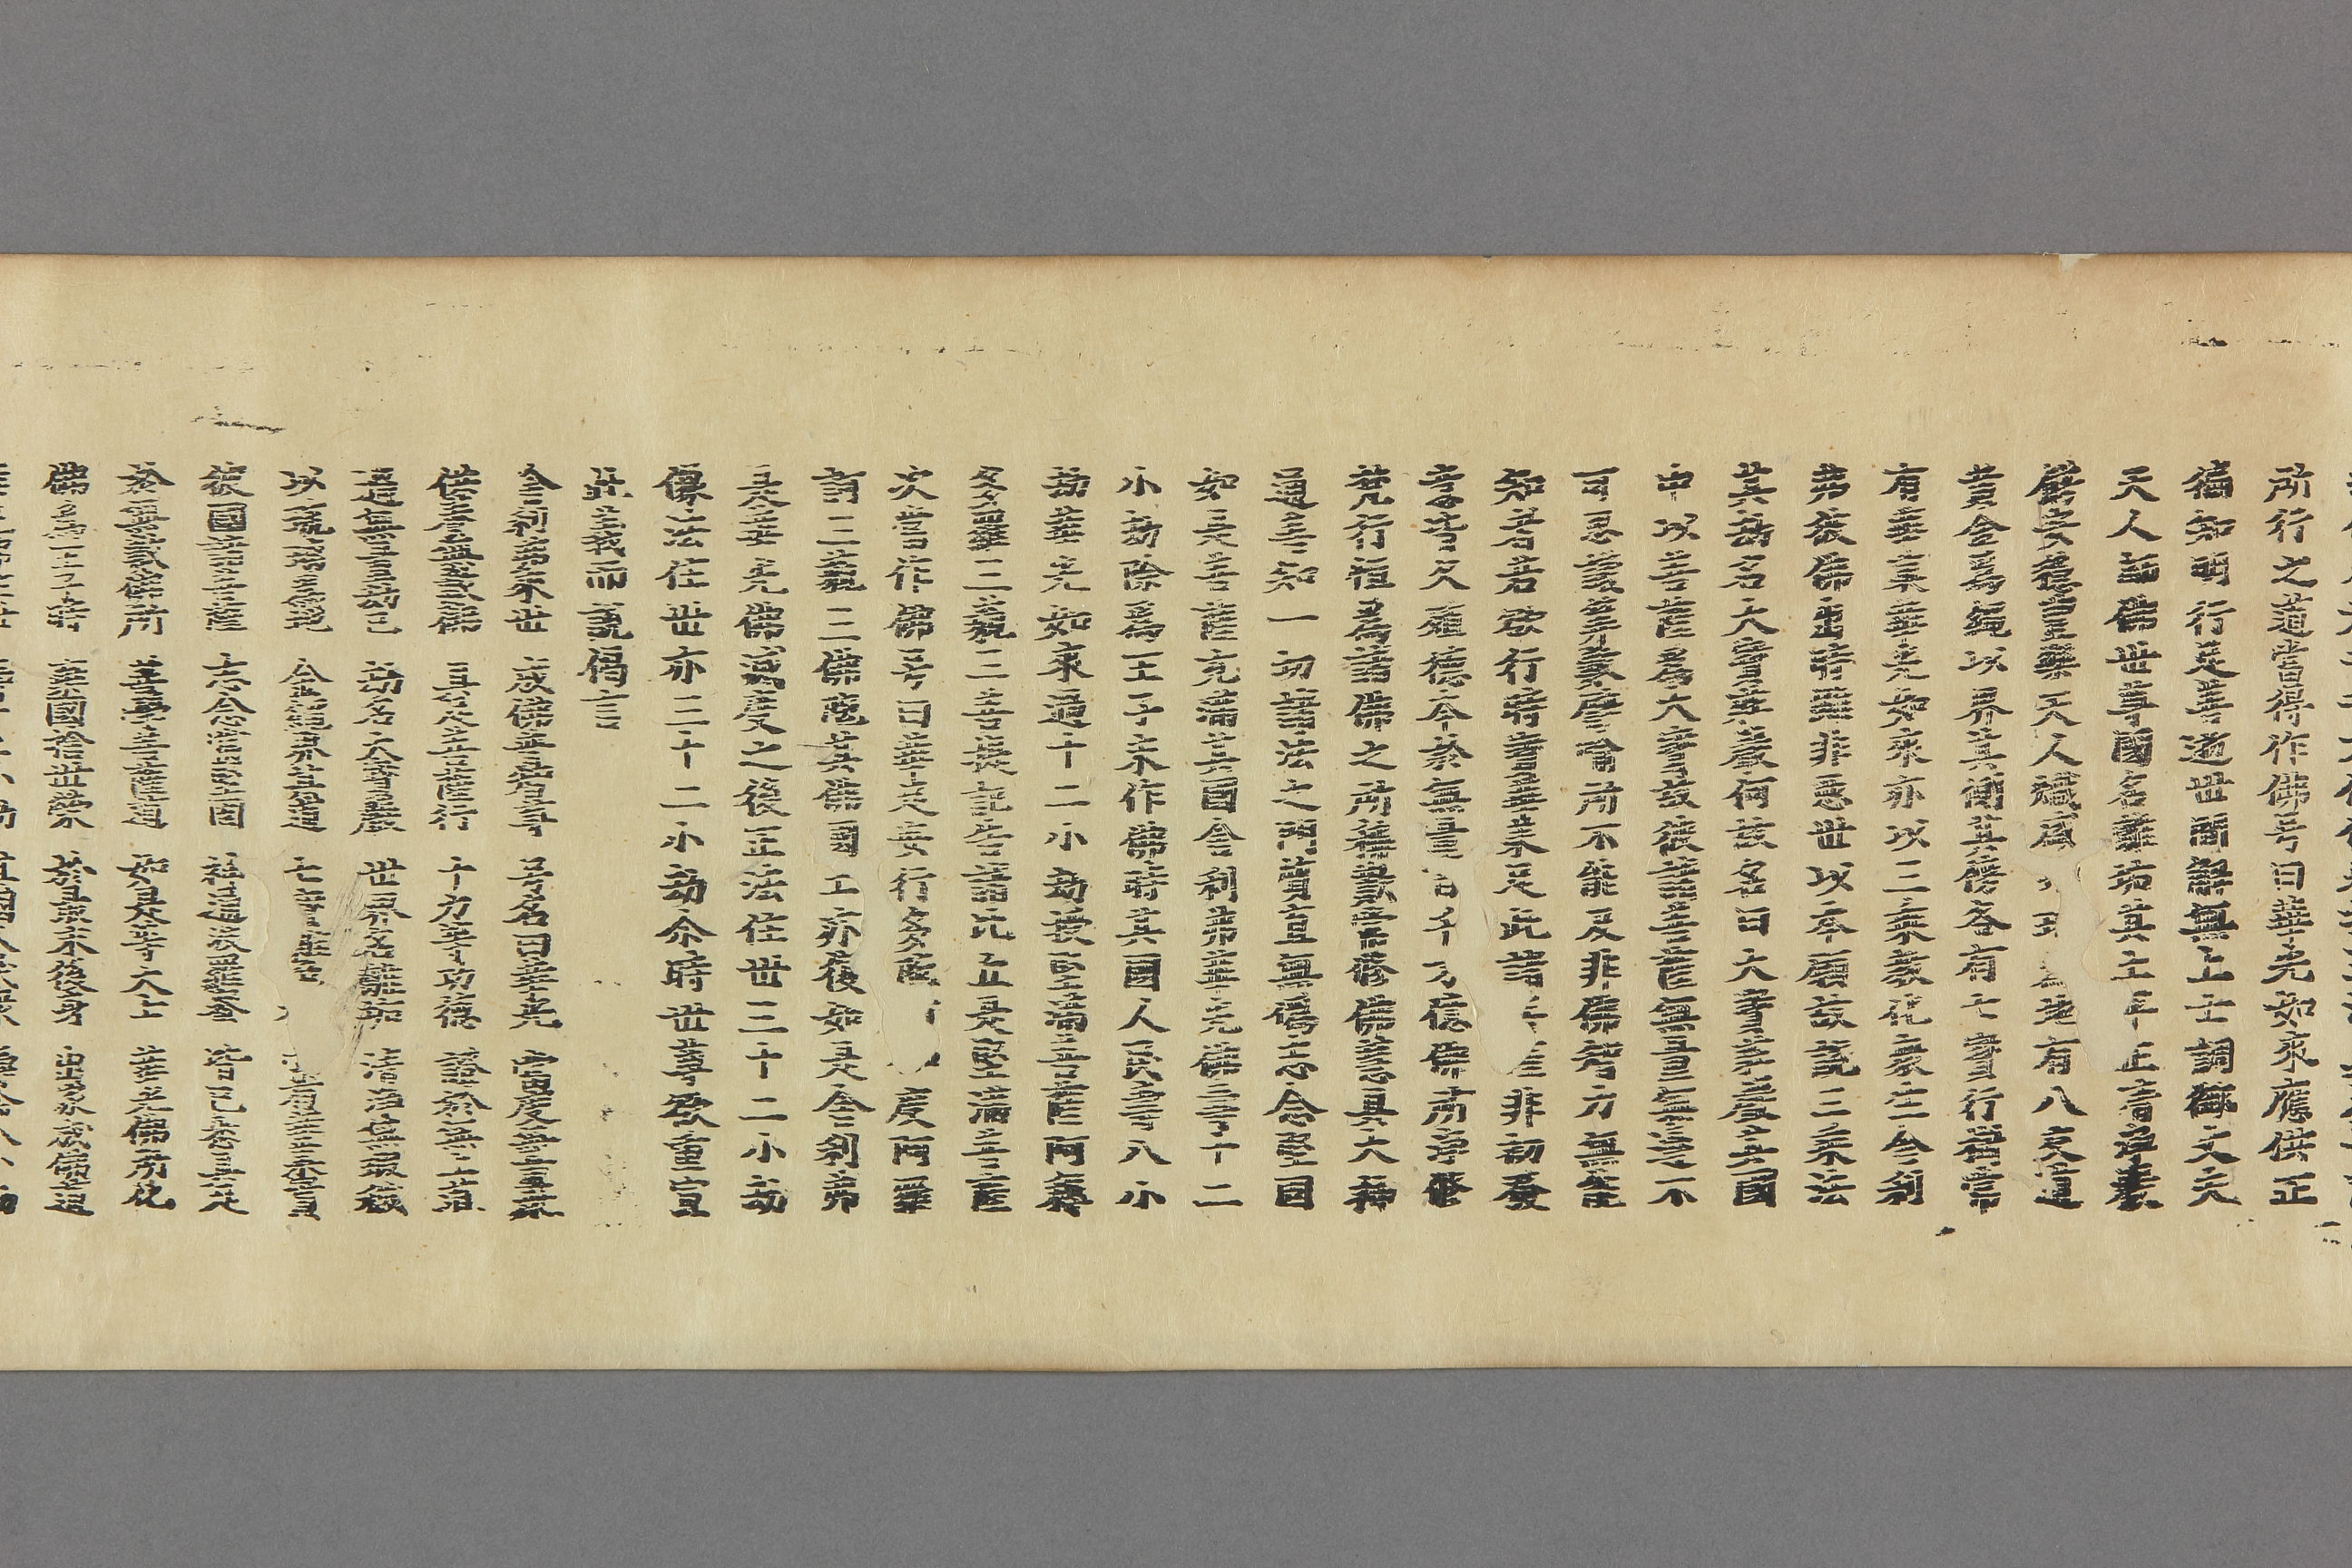 所行之道當得作佛号曰華光如來應供正
徧知明行足善逝世間解無上士調御丈夫
天人師佛世尊國名離垢其土平正清淨嚴
飾安隱豐樂天人熾盛地有八交道
黃金為繩以界其側其傍各有七寶行樹常
有華菓華光如來亦以三乘教化衆生舍利
弗彼佛出時雖非惡世以本願故說三乘法
其劫名大寶莊嚴何故名曰大寶莊嚴其國
中以菩薩為大寶故彼諸菩薩無量無邊不
可思議筭數譬喻所不能及非佛智力無能
知者若欲行時寶華承足此諸非初發
意皆久殖德本於無量百千万億佛所淨修
梵行恒為諸佛之所稱歎常修佛慧具大神
通善知一切諸法之門質直無偽志念堅固
如是菩薩充滿其國舍利弗華光佛壽十二
小劫除為王子未作佛時其國人民壽八小
劫華光如來過十二小劫授堅滿菩薩阿耨
多羅三藐三菩提記告諸比丘是堅滿菩薩
次當作佛号曰華足安行多陀度阿羅
訶三藐三佛陀其佛國土亦復如是舍利弗
是華光佛滅度之後正法住世三十二小劫
像法住世亦三十二小劫尒時世尊欲重宣
此義而說偈言
舍利弗來世 成佛普智尊 号名曰華光 當度無量衆
供養無數佛 具足菩薩行 十力等功德 證於無上道
過無量劫已 劫名大寶嚴 世界名離垢 清淨無瑕穢
以瑠璃為地 金繩界其道 七寶雜色 常有華菓實
彼國諸菩薩 志念常堅固 神通波羅蜜 皆已悉具足
於無數佛所 善學菩薩道 如是等大士 華光佛所化
佛為王子時 棄國捨世榮 於最末後身 出家成佛道